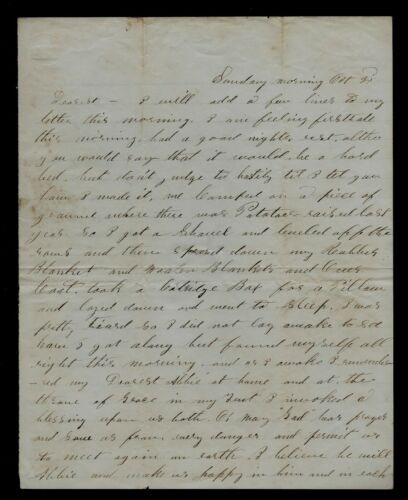 Sunday morning Oct
Dearest – I will add a few lines to my
letter this morning. I am feeling firstrate
this morning, had a good nights rest, altho
you would say that it would be a hard
bed, but don't judge to hastily til I tell you
how I made it, we Camped on a piece of
ground where there was Potatoes raised last
year so I got a Shovel and leveled off the
rows and then spread down my Rubber
Blanket and Woolen Blankets and Over
Coat. took a Catridge Box for a Pillow
and layed down and went to sleep. I was
pretty tiard so I did not lay awake to see
how I got along but found myself all
right this morning. and as I awoke I remember
-ed my Dearest Abbie at home and at the
throne of Grace in my tent I invoked a
blessing upon us both O! may God hear prayer
and save us from every danger and permit us
to meet again on earth. I believe he will
Abbie and make us happy in him and in each